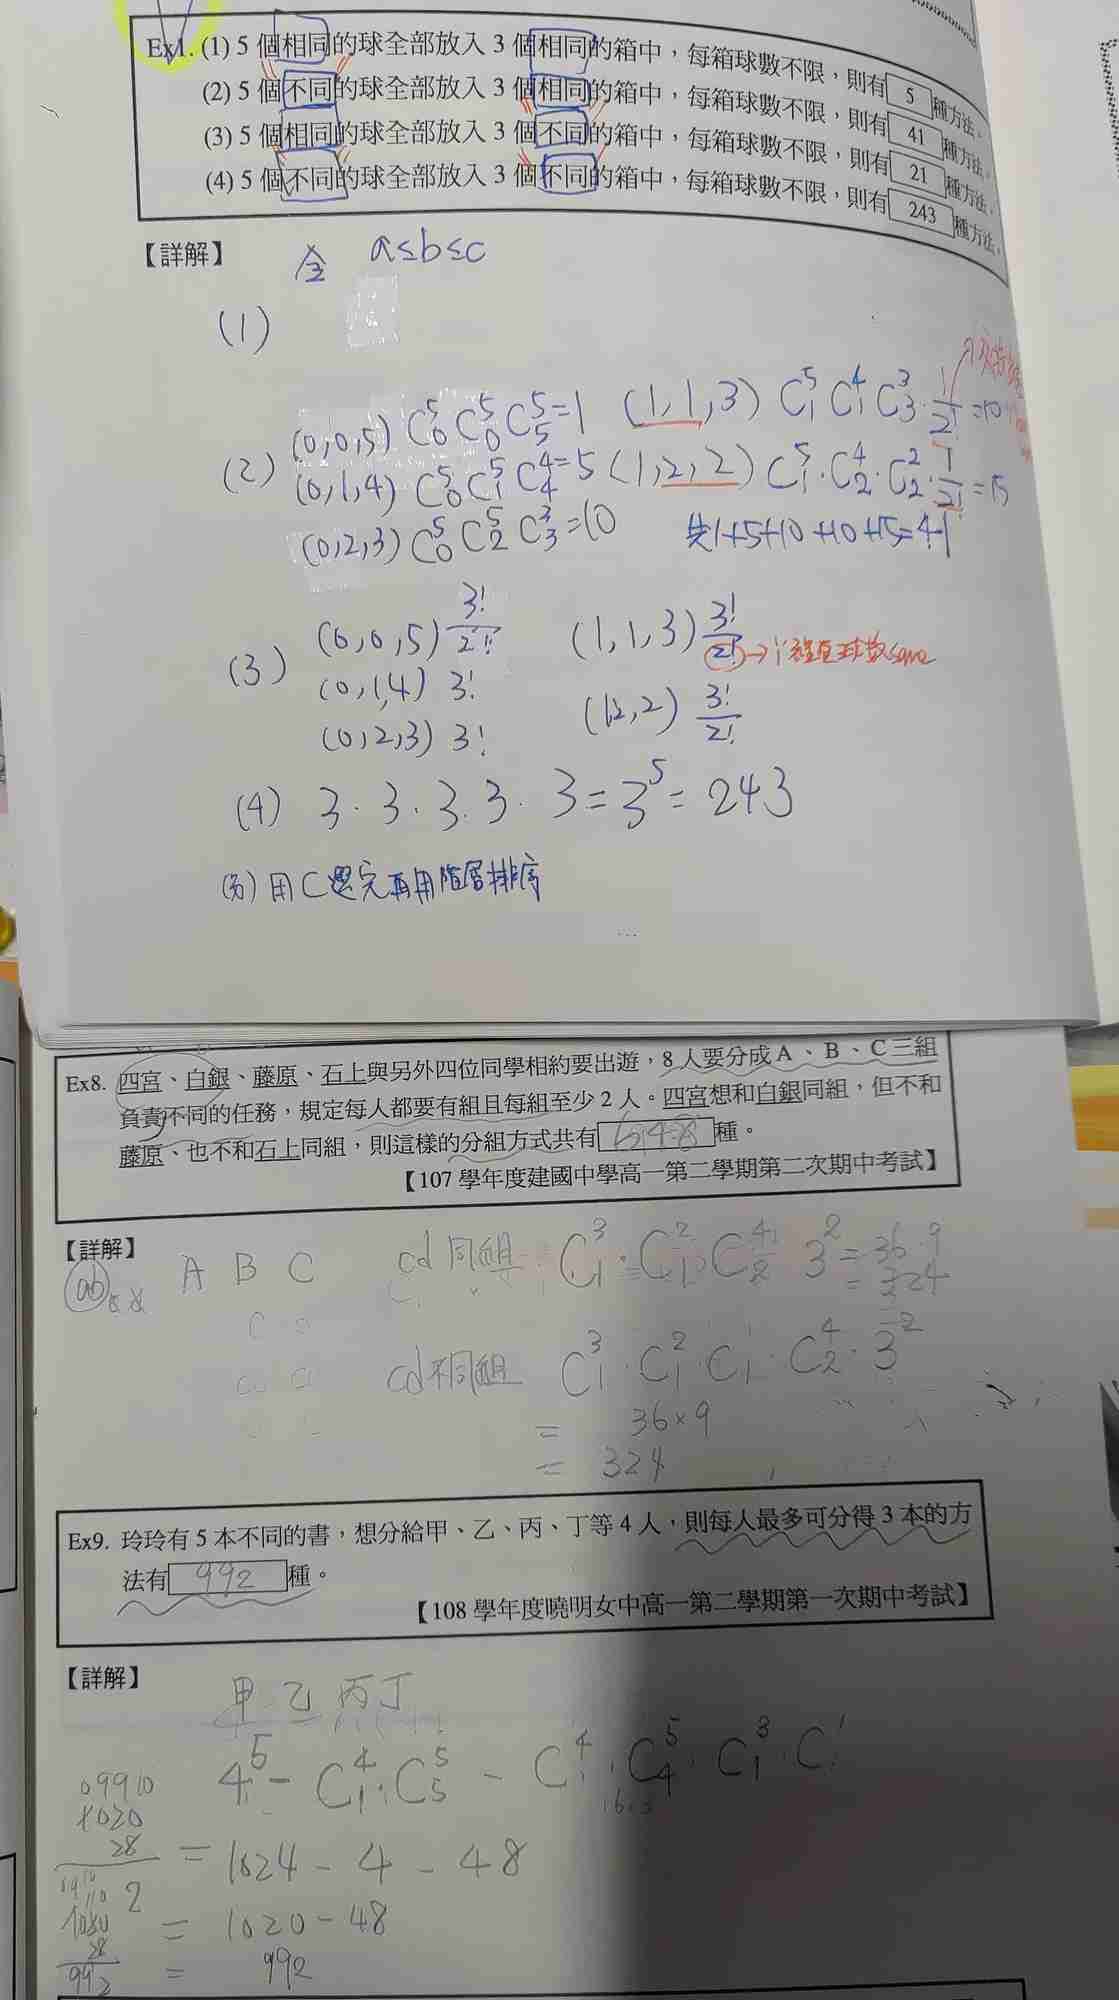 Ex1. (1) 5 個相同的球全部放入 3 個相同的箱中，每箱球數不限，則有 5 種方法。
(2) 5 個不同的球全部放入 3 個相同的箱中，每箱球數不限，則有 41 種方法。
(3) 5 個相同的球全部放入 3 個不同的箱中，每箱球數不限，則有 21 種方法。
(4) 5 個不同的球全部放入 3 個不同的箱中，每箱球數不限，則有 243 種方法。
【詳解】 a≤b≤c
(1)
(0,0,5) C⁵₀ C⁵₀ C⁵₅ = 1 (1,1,3) C⁵₁ C⁴₁ C³₃ · 1/2! = 10
(2) (0,1,4) C⁵₀ C⁵₁ C⁴₄ = 5 (1,2,2) C⁵₁ · C⁴₂ · C²₂ · 1/2! = 15
(0,2,3) C⁵₀ C⁵₂ C³₃ = 10 共1+5+10+10+15=41
(3) (0,0,5) 3!/2! (1,1,3) 3!/2! →
(0,1,4) 3! (1,2,2) 3!/2!
(0,2,3) 3!
(4) 3 · 3 · 3 · 3 · 3 = 3⁵ = 243
用C選完再用階層排序
Ex8. 四宮、白銀、藤原、石上與另外四位同學相約要出遊，8 人要分成 A、B、C 三組
負責不同的任務，規定每人都要有組且每組至少 2 人。四宮想和白銀同組，但不和
藤原、也不和石上同組，則這樣的分組方式共有 648 種。
【107 學年度建國中學高一第二學期第二次期中考試】
【詳解】
ab A B C cd 同組 C³₁ · C²₁ C⁴₂ 3² = 36·9
= 324
cd不同組 C³₁ · C²₁ · C₁ · C⁴₂ · 3²
= 36×9
= 324
Ex9. 玲玲有 5 本不同的書，想分給甲、乙、丙、丁等 4 人，則每人最多可分得 3 本的方
法有 992 種。
【108 學年度曉明女中高一第二學期第一次期中考試】
【詳解】
甲 乙 丙 丁
4⁵ - C⁴₁ · C⁵₅ - C⁴₁ · C⁵₄ · C³₁ · C¹
= 1024 - 4 - 48
= 1020 - 48
= 992